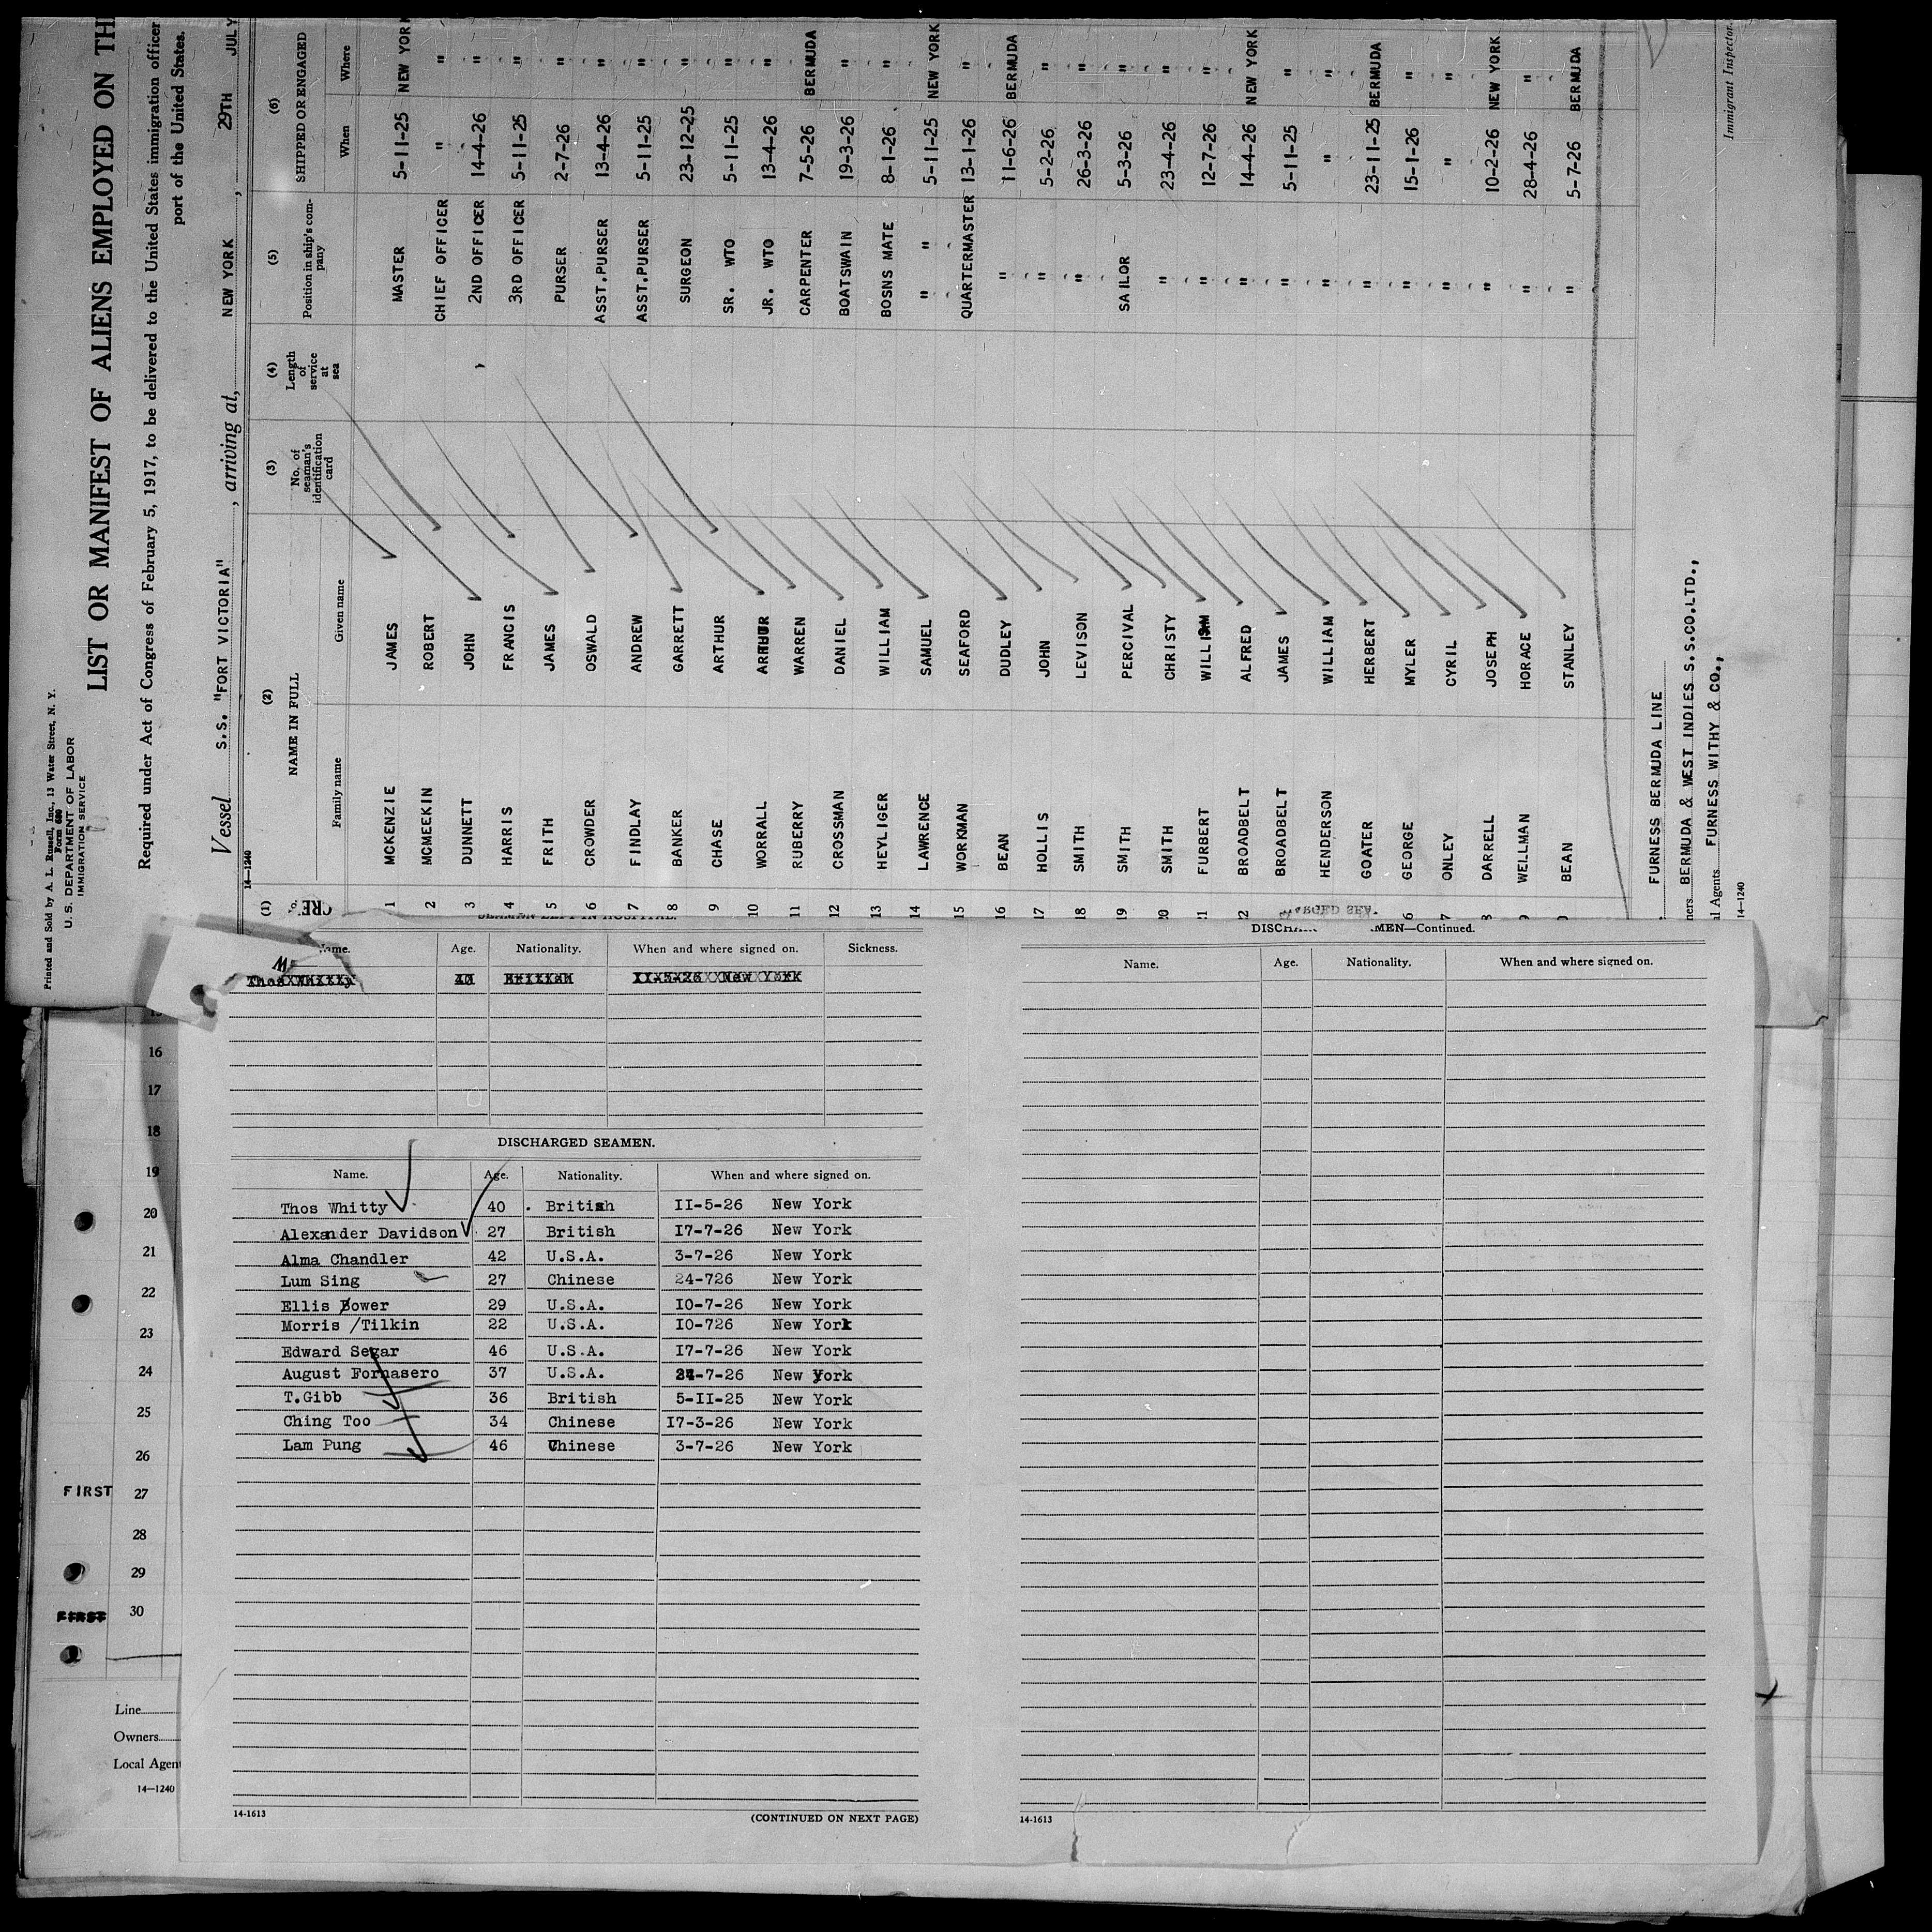 Printed and Sold by A. L. Russell, Inc., 13 Water Street, N. Y.
Form 680
U. S. DEPARTMENT OF LABOR
IMMIGRATION SERVICE
LIST OR MANIFEST OF ALIENS EMPLOYED ON TH
Required under Act of Congress of February 5, 1917, to be delivered to the United States immigration officer
port of the United States.
Vessel S.S. "FORT VICTORIA", arriving at, NEW YORK, 29TH JULY
14—1240
(1) (2) (3) (4) (5) (6)
NAME IN FULL No. of seaman's identification card Length of service at sea Position in ship's company SHIPPED OR ENGAGED
Family name Given name When Where
1 MCKENZIE JAMES MASTER 5-11-25 NEW YORK
2 MCMEEKIN ROBERT CHIEF OFFICER " "
3 DUNNETT JOHN 2ND OFFICER 14-4-26 "
4 HARRIS FRANCIS 3RD OFFICER 5-11-25 "
5 FRITH JAMES PURSER 2-7-26 "
6 CROWDER OSWALD ASST.PURSER 13-4-26 "
7 FINDLAY ANDREW ASST.PURSER 5-11-25 "
8 BANKER GARRETT SURGEON 23-12-25 "
9 CHASE ARTHUR SR. WTO 5-11-25 "
10 WORRALL ARTHUR JR. WTO 13-4-26 "
11 RUBERRY WARREN CARPENTER 7-5-26 BERMUDA
12 CROSSMAN DANIEL BOATSWAIN 19-3-26 "
13 HEYLIGER WILLIAM BOSNS MATE 8-1-26 "
14 LAWRENCE SAMUEL " " 5-11-25 NEW YORK
15 WORKMAN SEAFORD QUARTERMASTER 13-1-26 "
16 BEAN DUDLEY " 11-6-26 BERMUDA
17 HOLLIS JOHN " 5-2-26 "
18 SMITH LEVISON " 26-3-26 "
19 SMITH PERCIVAL SAILOR 5-3-26 "
20 SMITH CHRISTY " 23-4-26 "
21 FURBERT WILLIAM " 12-7-26 "
22 BROADBELT ALFRED " 14-4-26 NEW YORK
BROADBELT JAMES " 5-11-25 "
HENDERSON WILLIAM " " "
GOATER HERBERT " 23-11-25 BERMUDA
6 GEORGE MYLER " 15-1-26 "
7 ONLEY CYRIL " " "
8 DARRELL JOSEPH " 10-2-26 NEW YORK
9 WELLMAN HORACE " 28-4-26 "
BEAN STANLEY " 5-7-26 BERMUDA
FURNESS BERMUDA LINE
ners BERMUDA & WEST INDIES S.S.CO.LTD.,
l Agents FURNESS WITHY & CO.,
Immigrant Inspector.
14—1240
Name. Age. Nationality. When and where signed on. Sickness.
Thos Whitty 40 British 11-5-26 New York
DISCHARGED SEAMEN.
Name. Age. Nationality. When and where signed on.
Thos Whitty 40 British II-5-26 New York
Alexander Davidson 27 British I7-7-26 New York
Alma Chandler 42 U.S.A. 3-7-26 New York
Lum Sing 27 Chinese 24-726 New York
Ellis Bower 29 U.S.A. I0-7-26 New York
Morris Tilkin 22 U.S.A. I0-726 New York
Edward Segar 46 U.S.A. I7-7-26 New York
August Fornasero 37 U.S.A. 24-7-26 New york
T.Gibb 36 British 5-II-25 New York
Ching Too 34 Chinese I7-3-26 New York
Lam Pung 46 Chinese 3-7-26 New York
14-1613
(CONTINUED ON NEXT PAGE)
MEN—Continued.
Name. Age. Nationality. When and where signed on.
14-1613
16
17
18
19
20
21
22
23
24
25
26
FIRST 27
28
29
FIRST 30
Line
Owners
Local Agen
14—1240